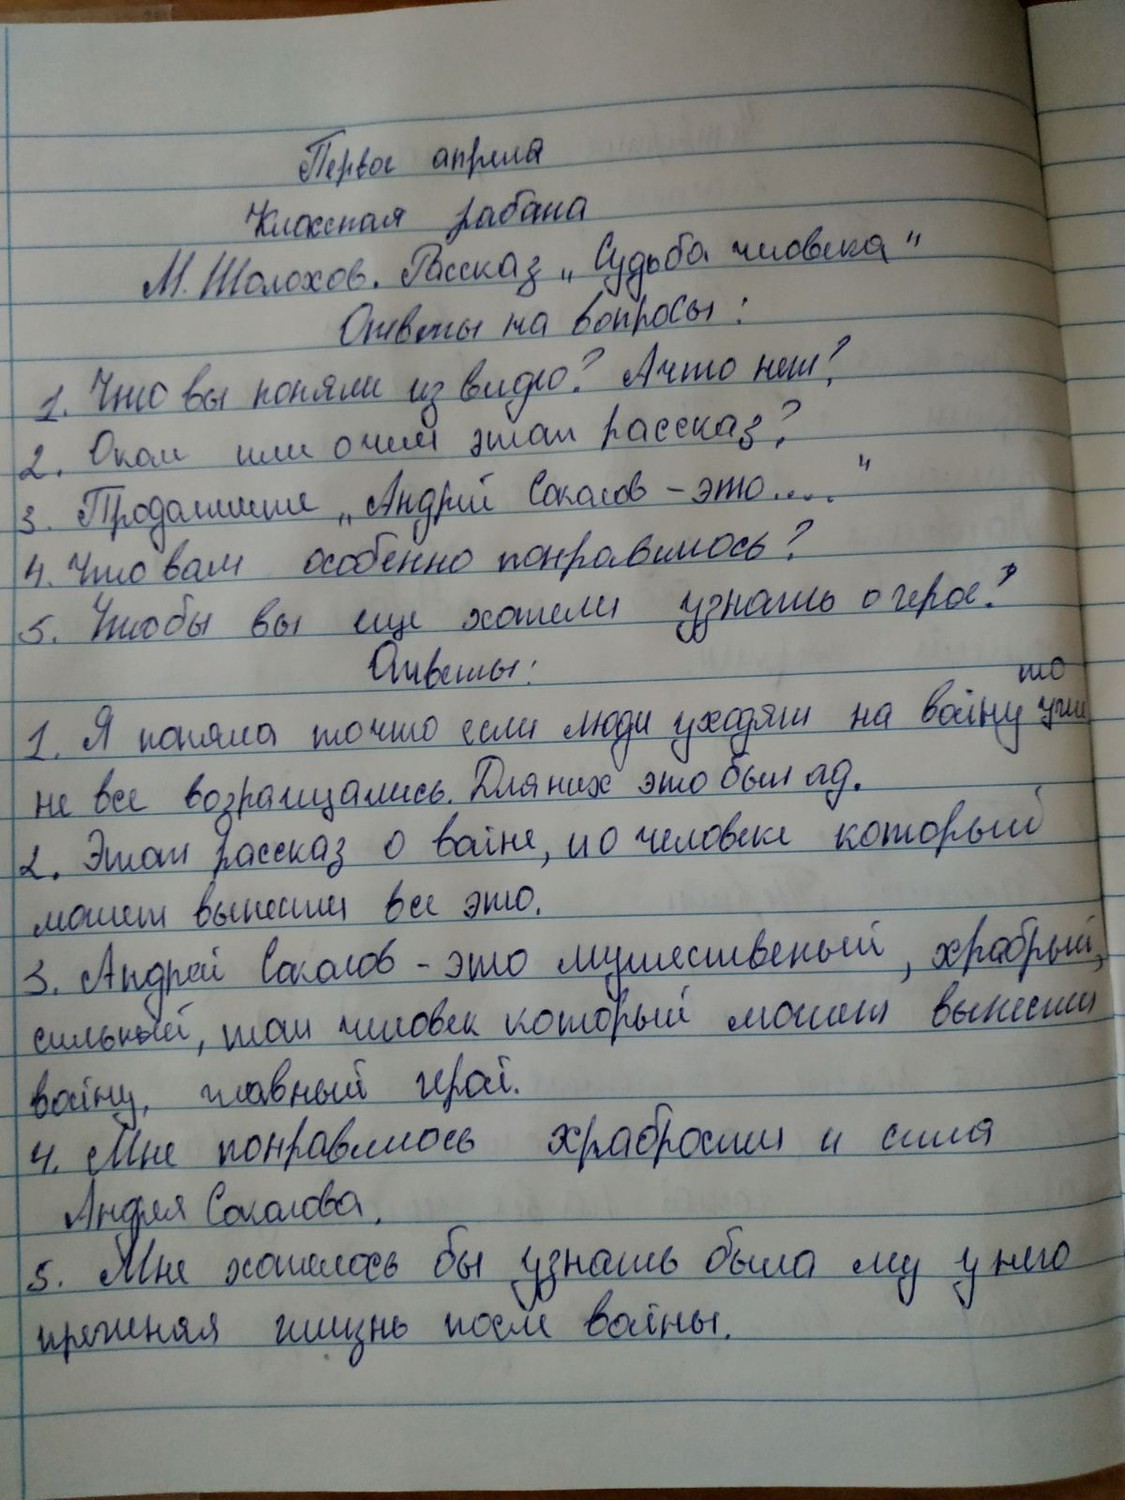 Первое апреля
Классная работа
М. Шолохов. Рассказ „Судьба человека"
Ответы на вопросы:
1. Что вы поняли из видео? А что нет?
2. О ком или о чем этот рассказ?
3. Продолжите „Андрей Сокалов - это....."
4. Что вам особенно понравилось?
5. Что бы вы еще хотели узнать о герое?
Ответы:
то
1. Я поняла то что если люди уходят на войну уже
не все возращались. Для них это был ад.
2. Этот рассказ о войне, и о человеке который
может вынести все это.
3. Андрей Сокалов - это мужественый, храбрый,
сильный, тот человек который может вынести
войну, главный герой.
4. Мне понравилось храбрости и сила
Андрея Сокалова.
5. Мне хотелось бы узнать была му у него
прежняя жизнь после войны.